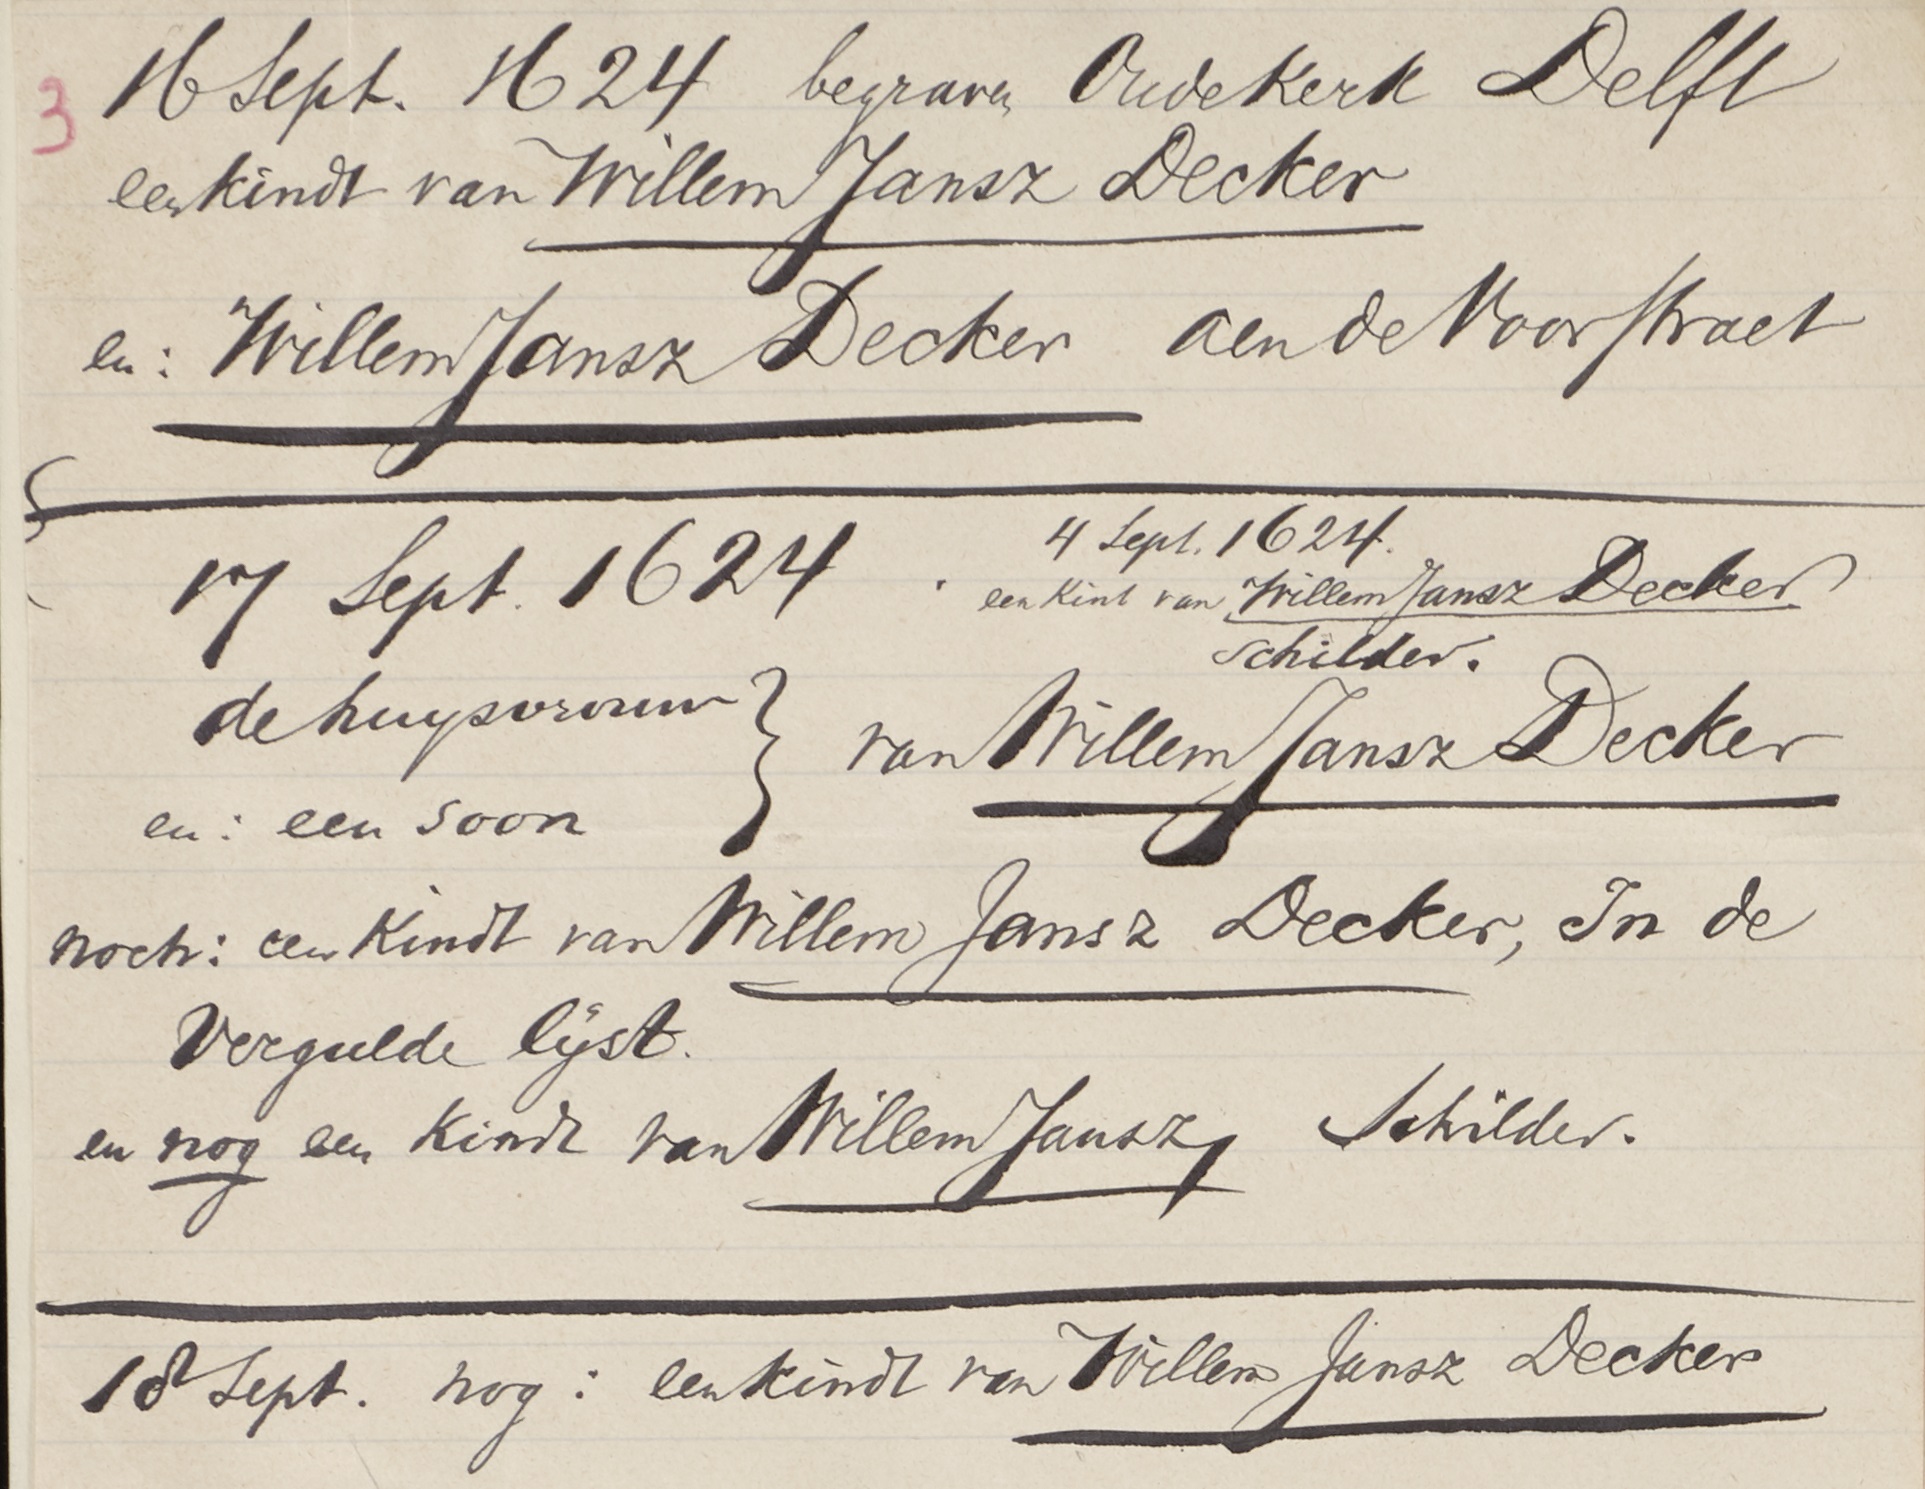 3
16 Sept. 1624 begraven Oudekerk Delft
een kindt van Willem Jansz Decker
en: Willem Jansz Decker aen de Voorstraet
17 Sept. 1624
4 Sept. 1624.
een kint van Willem Jansz Decker
schilder.
de huysvrouw
en: een soon
} van Willem Jansz Decker
noch: een Kindt van Willem Jansz Decker, In de
Vergulde lijst.
en nog een Kindt van Willem Jansz, Schilder.
18 Sept. nog: een kindt van Willem Jansz Decker